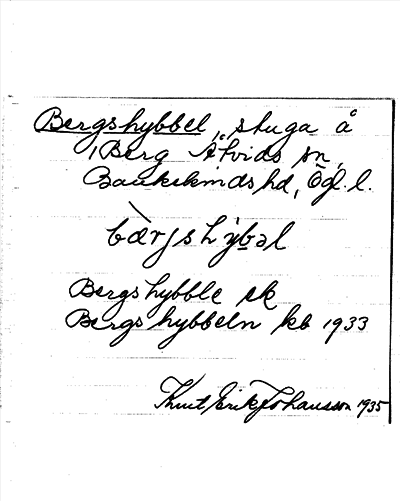 Bergshybbel, stuga å
Berg Åtvids sn,
Bankekinds hd, Ögl. l.
bærjshỳbəl
Bergshybble ek
Bergshybbeln kb 1933
Knut Erik Johansson 1935